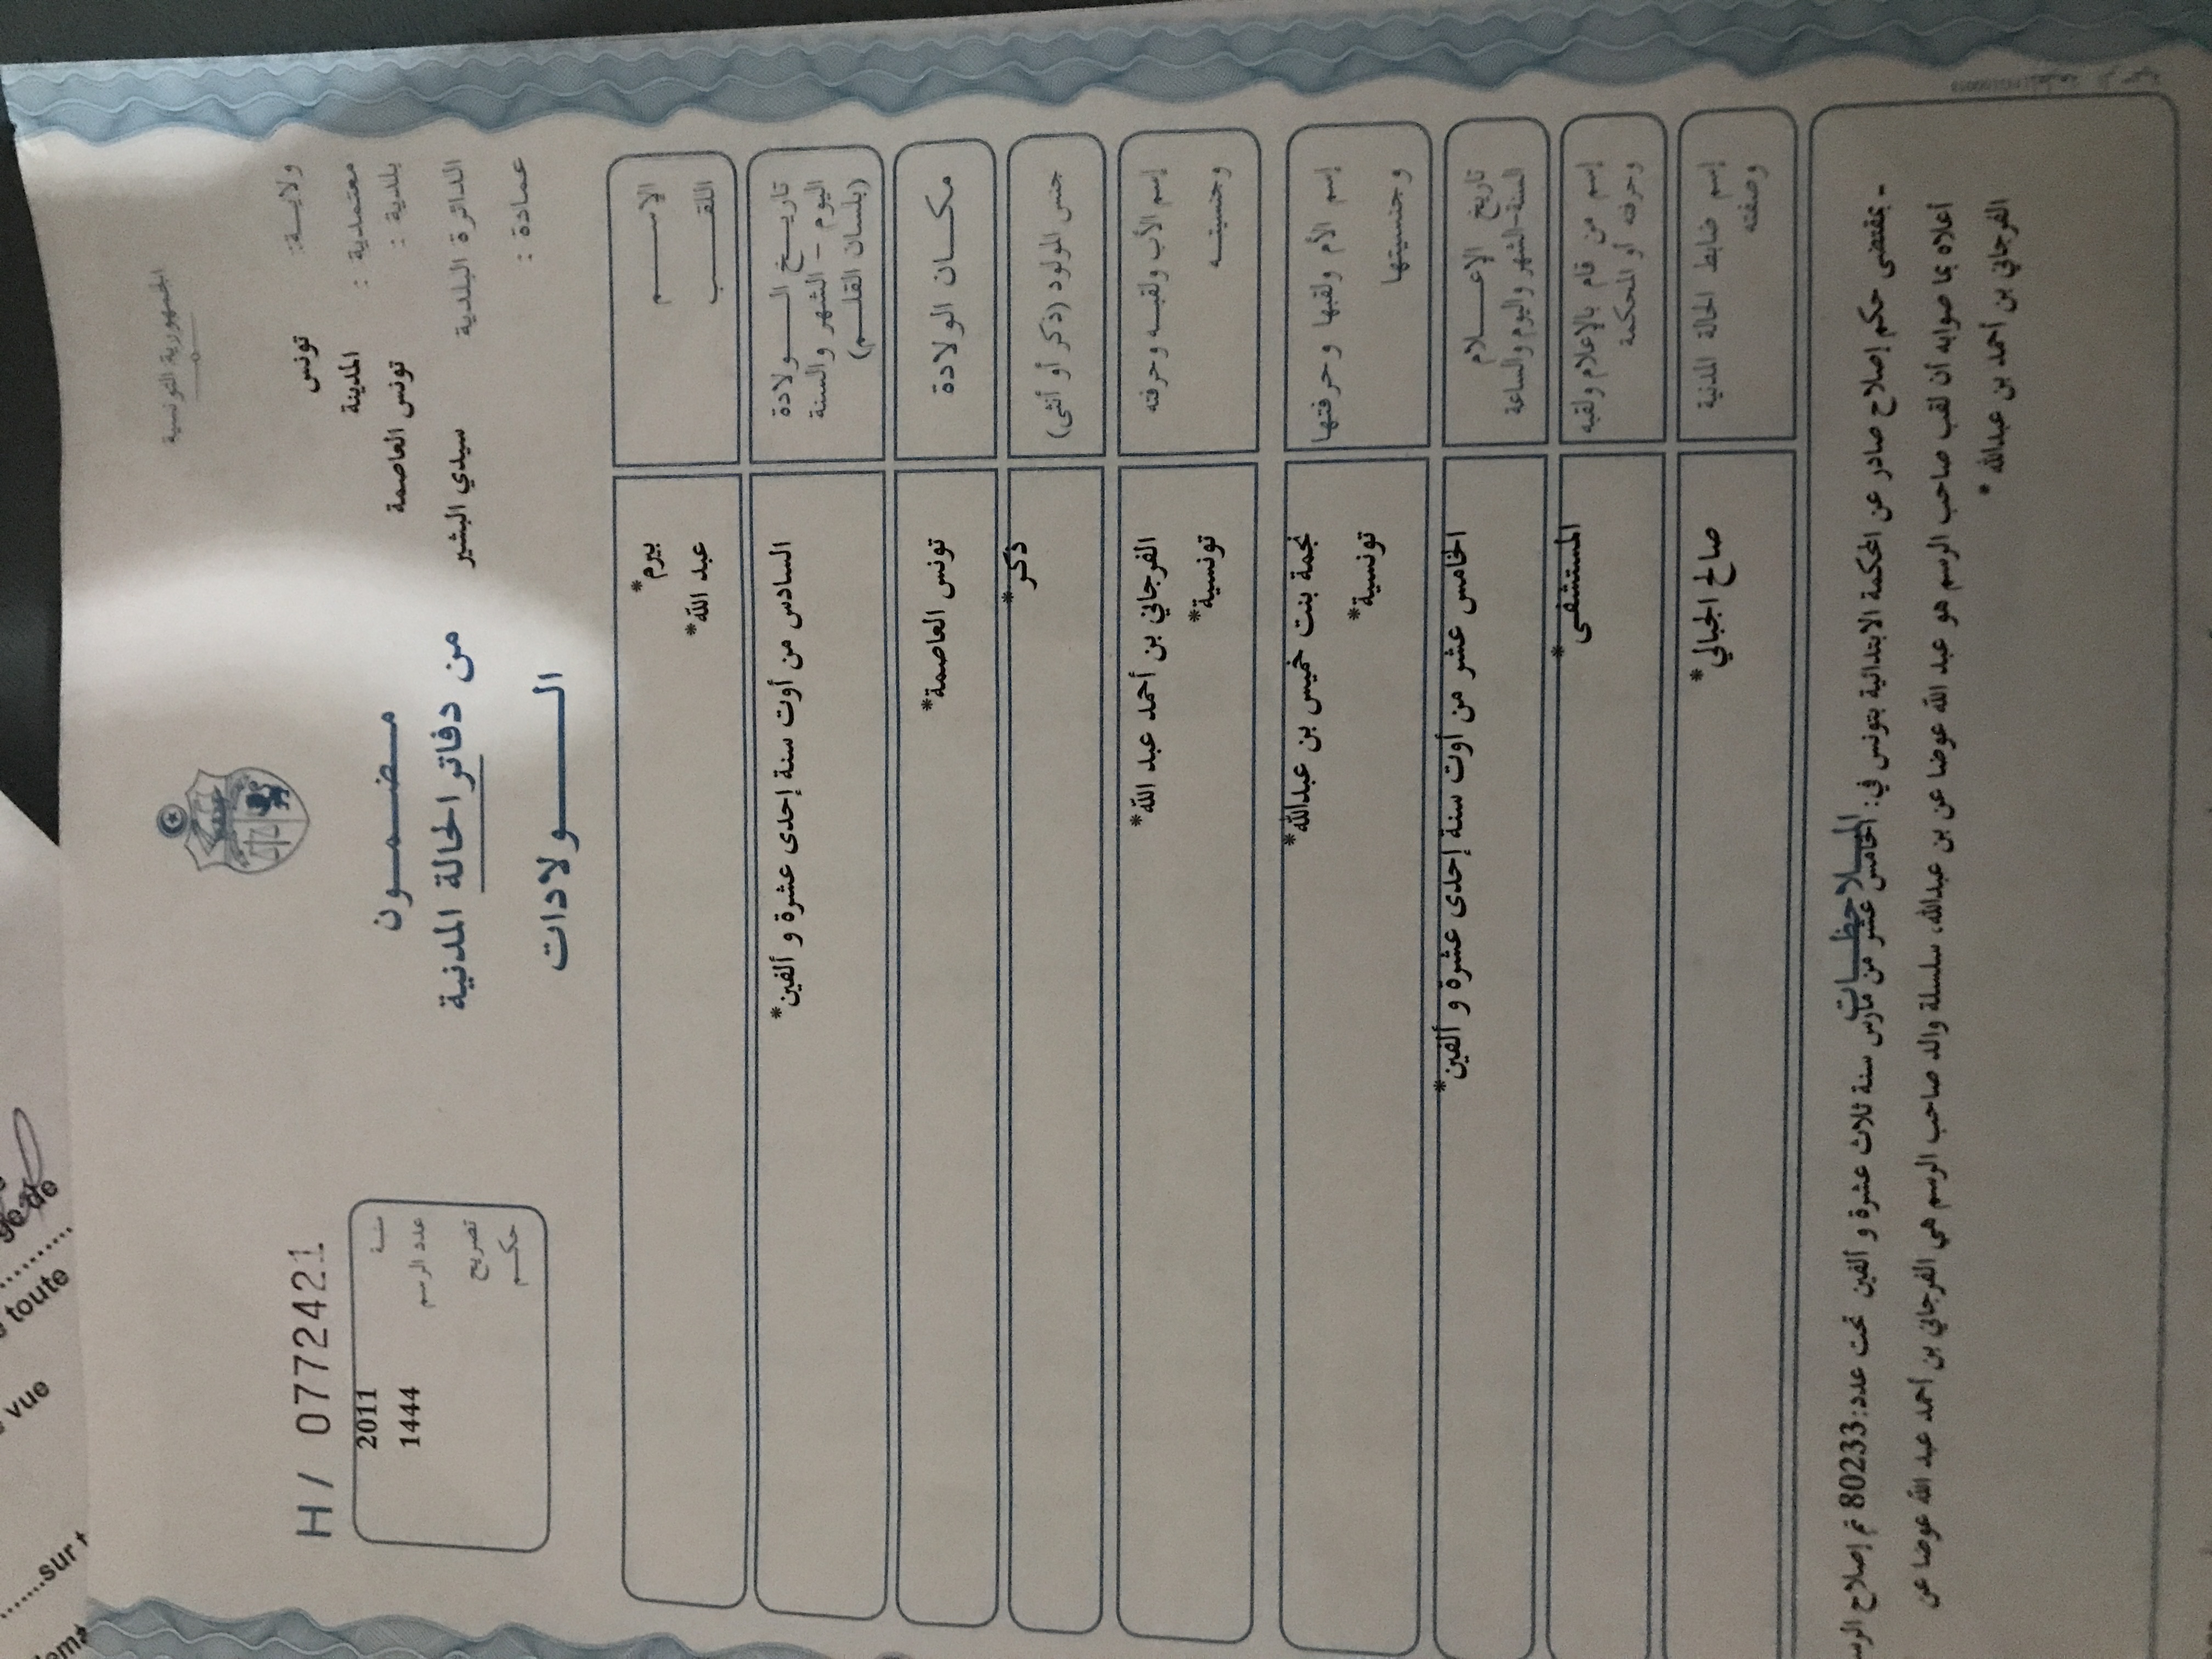 الجمهورية التونسية
ولايـة: تونس
معتمدية : المدينة
بلدية : تونس العاصمة
الدائرة البلدية سيدي البشير
عمادة :
مضمون
من دفاتر الحالة المدنية
الولادات
H / 0772421
سنة 2011
عدد الرسم 1444
تصريح
حكم
الإسم بيرم*
اللقب عبد الله*
تاريخ الولادة
اليوم - الشهر والسنة
(بلسان القلم)
السادس من أوت سنة إحدى عشرة و ألفين*
مكان الولادة تونس العاصمة*
جنس المولود (ذكر أو أنثى) ذكر*
إسم الأب ولقبه وحرفته الفرجاني بن أحمد عبد الله*
وجنسيته تونسية*
إسم الأم ولقبها وحرفتها نجمة بنت خميس بن عبدالله*
وجنسيتها تونسية*
تاريخ الإعلام
السنة-الشهر واليوم والساعة
الخامس عشر من أوت سنة إحدى عشرة و ألفين*
إسم من قام بالإعلام ولقبه
وحرفته أو المحكمة
المستشفى*
إسم ضابط الحالة المدنية
وصفته
صالح الجبالي*
الملاحظات
- بمقتضى حكم إصلاح صادر عن المحكمة الابتدائية بتونس في: الخامس عشر من مارس سنة ثلاث عشرة و ألفين تحت عدد:80233 تم إصلاح
أعلاه بما صوابه أن لقب صاحب الرسم هو عبد الله عوضا عن بن عبدالله، سلسلة والد صاحب الرسم هي الفرجاني بن أحمد عبد الله عوضا عن
الفرجاني بن أحمد بن عبدالله*
toute
vue
sur